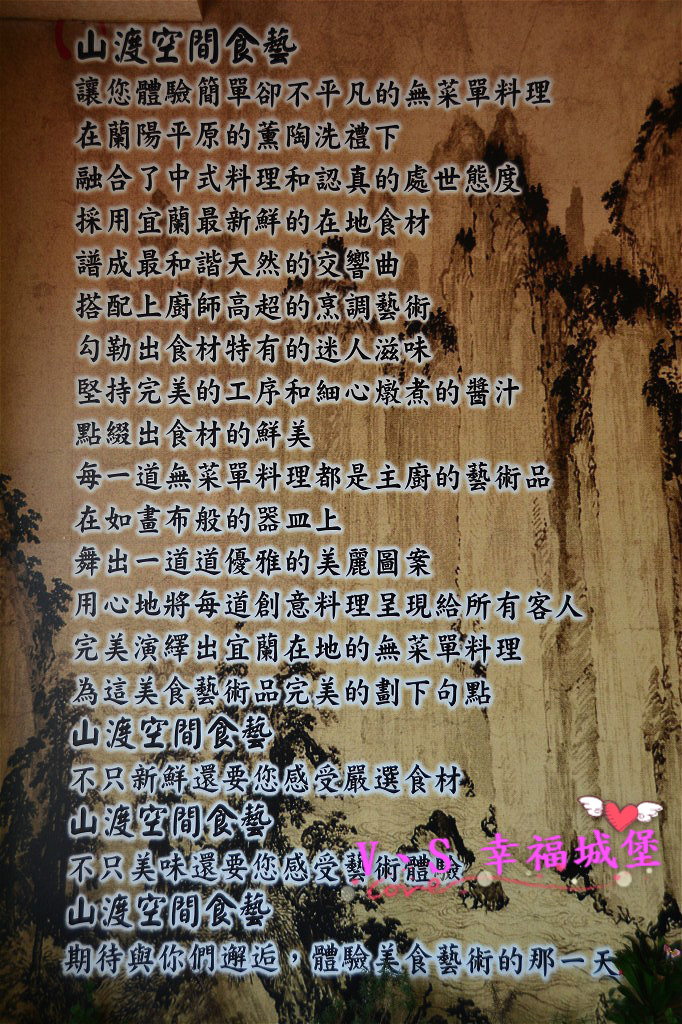 山渡空間食藝
讓您體驗簡單卻不平凡的無菜單料理
在蘭陽平原的薰陶洗禮下
融合了中式料理和認真的處世態度
採用宜蘭最新鮮的在地食材
譜成最和諧天然的交響曲
搭配上廚師高超的烹調藝術
勾勒出食材特有的迷人滋味
堅持完美的工序和細心燉煮的醬汁
點綴出食材的鮮美
每一道無菜單料理都是主廚的藝術品
在如畫布般的器皿上
舞出一道道優雅的美麗圖案
用心地將每道創意料理呈現給所有客人
完美演繹出宜蘭在地的無菜單料理
為這美食藝術品完美的劃下句點
山渡空間食藝
不只新鮮還要您感受嚴選食材
山渡空間食藝
不只美味還要您感受藝術體驗
V、S 幸福城堡
Love
山渡空間食藝
期待與你們邂逅，體驗美食藝術的那一天